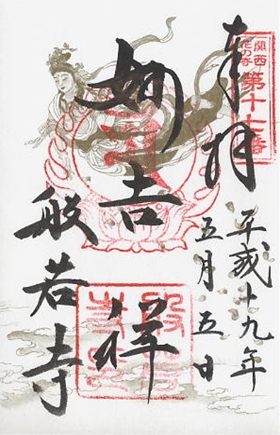 奉拝
関西
花の寺
第十七番
平成十九年
五月五日
妙吉祥
般若寺